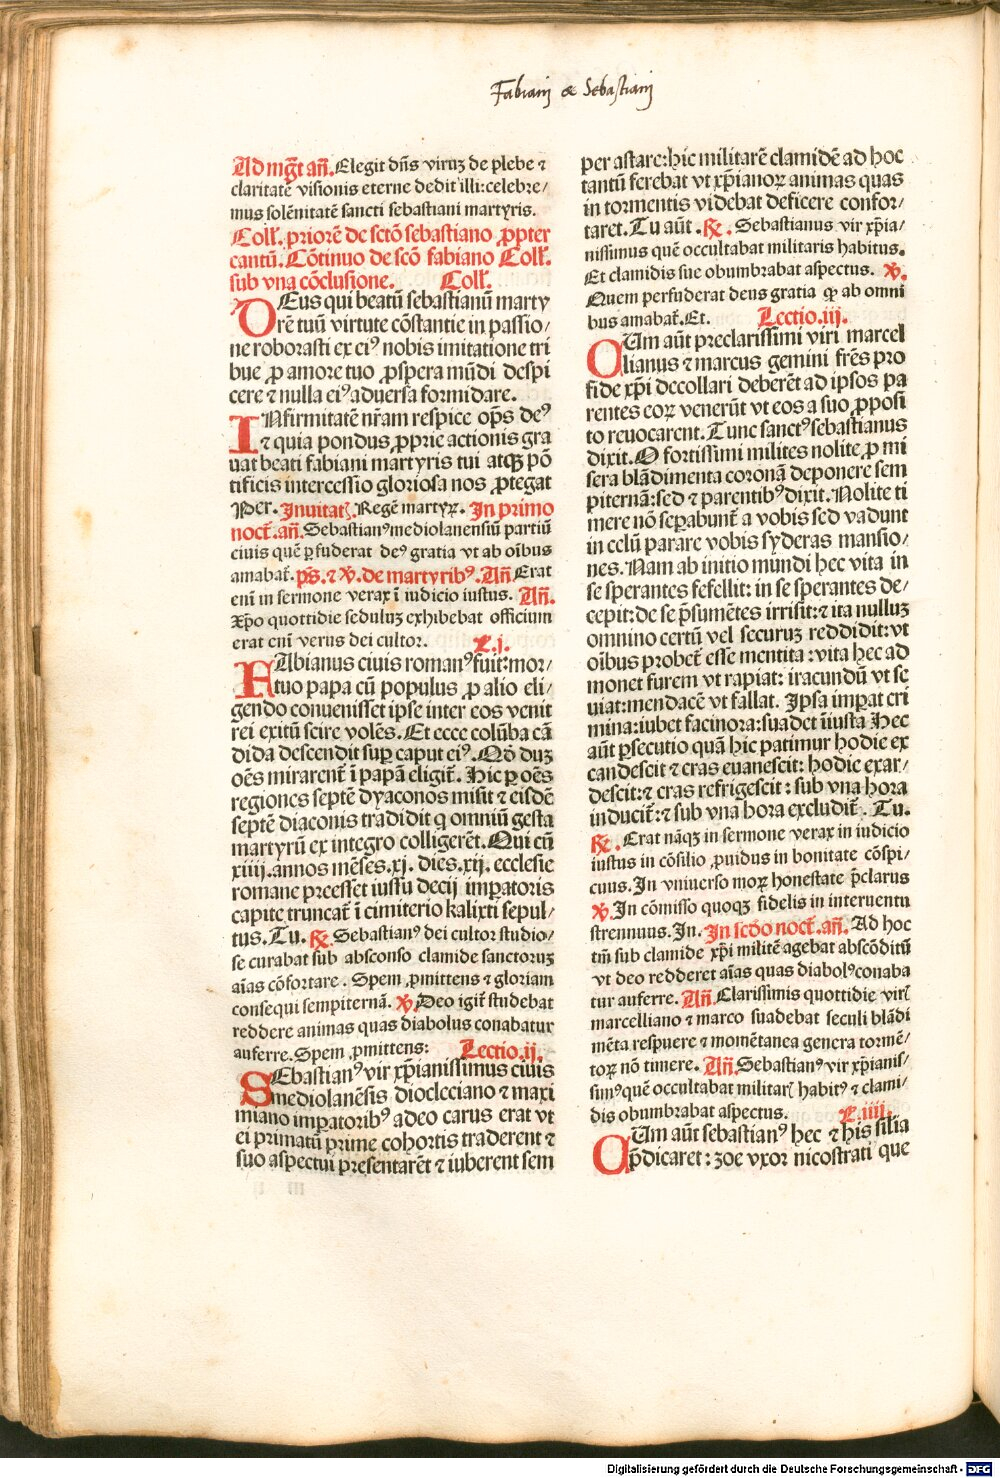 Fabiani & Sebastiani
Ad mgt̄ an̄. Elegit dn̄s viruꝫ de plebe ⁊
claritatē visionis eterne dedit illi: celebre/
mus solēnitatē sancti sebastiani martyris.
Coll'. priorē de sctō sebastiano ꝓpter
cantū. Cōtinuo de scō fabiano Coll'.
sub vna cōclusione. Coll'.
DEus qui beatū sebastianū marty
rē tuū virtute cōstantie in passio/
ne roborasti ex eiꝰ nobis imitatione tri
bue ꝓ amore tuo ꝓspera mūdi despi
cere ⁊ nulla eiꝰ aduersa formidare.
INfirmitatē nr̄am respice op̄s deꝰ
⁊ quia pondus ꝓprie actionis gra
uat beati fabiani martyris tui atqꝫ pō
tificis intercessio gloriosa nos ꝓtegat
Per. Inuitatꝭ. Regē martyꝝ. In primo
noct̄. an̄. Sebastianꝰ mediolanensiū partiū
ciuis quē ꝑfuderat deꝰ gratia vt ab oībus
amabat̄. ps̄. ⁊ ℣. de martyribꝰ. An̄ Erat
eni̅ in sermone verax ī iudicio iustus. An̄.
Xp̄o quottidie seduluꝫ exhibebat officium
erat eni̅ verus dei cultor. L.j.
FAbianus ciuis romanꝰ fuit: mor/
tuo papa cū populus ꝓ alio eli/
gendo conuenisset ipse inter eos venit
rei exitū scire volēs. Et ecce colūba cā
dida descendit suꝑ caput eiꝰ. Qd̄ duꝫ
oēs mirarent̄ ī papā eligit̄. Hic ꝑ oēs
regiones septē dyaconos misit ⁊ eisdē
septē diaconis tradidit q omniū gesta
martyrū ex integro colligerēt. Qui cū
xiiij. annos mēses. xj. dies. xij. ecclesie
romane preesset iussu decij imꝑatoris
capite truncat̄ ī cimiterio kalixti sepul/
tus. Tu. ℟. Sebastianꝰ dei cultor studio/
se curabat sub absconso clamide sanctoruꝫ
aīas cōfortare. Spem ꝓmittens ⁊ gloriam
consequi sempiternā. ℣. Deo igit̄ studebat
reddere animas quas diabolus conabatur
auferre. Spem ꝓmittens: Lectio.ij.
SEbastianꝰ vir xp̄ianissimus ciuis
mediolanēsis diocleciano ⁊ maxi
miano imꝑatoribꝰ adeo carus erat vt
ei primatū prime cohortis traderent ⁊
suo aspectui presentarēt ⁊ iuberent sem
per astare: hic militarē clamidē ad hoc
tantū ferebat vt xp̄ianoꝝ animas quas
in tormentis videbat deficere confor/
taret. Tu aūt. ℟. Sebastianus vir xp̄ia/
nissimus quē occultabat militaris habitus.
Et clamidis sue obumbrabat aspectus. ℣.
Quem perfuderat deus gratia qꝫ ab omni
bus amabat̄. Et. Lectio.iij.
CUm aūt preclarissimi viri marcel
lianus ⁊ marcus gemini frēs pro
fide xp̄i decollari deberēt ad ipsos pa
rentes eoꝝ venerūt vt eos a suo ꝓposi
to reuocarent. Tunc sanctꝰ sebastianus
dixit. O fortissimi milites nolite ꝓ mi
sera blādimenta coronā deponere sem
piternā: sed ⁊ parentibꝰ dixit. Nolite ti
mere nō seꝑabunt̄ a vobis sed vadunt
in celū parare vobis syderas mansio/
nes. Nam ab initio mundi hec vita in
se sperantes fefellit: in se sperantes de/
cepit: de se p̄sumētes irrisit: ⁊ ita nulluꝫ
omnino certū vel securuꝫ reddidit: vt
oībus probet̄ esse mentita: vita hec ad
monet furem vt rapiat: iracundū vt se
uiat: mendacē vt fallat. Ipsa imꝑat cri
mina: iubet facinora: suadet iniusta Hec
aūt ꝑsecutio quā hic patimur hodie ex
candescit ⁊ cras euanescit: hodie exar/
descit: ⁊ cras refrigescit: sub vna hora
inducit̄: ⁊ sub vna hora excludit̄. Tu.
℟. Erat nāqꝫ in sermone verax in iudicio
iustus in cōsilio ꝓuidus in bonitate cōspi/
cuus. In vniuerso moꝝ honestate p̄clarus
℣. In cōmisso quoqꝫ fidelis in interuentu
strennuus. In. In scdo noct̄. an̄. Ad hoc
tm̄ sub clamide xp̄i militē agebat abscōditū
vt deo redderet aīas quas diabolꝰ conaba
tur auferre. An̄. Clarissimis quottidie virꝭ
marcelliano ⁊ marco suadebat seculi blādi
mēta respuere ⁊ momētanea genera tormē/
toꝝ nō timere. An̄. Sebastianꝰ vir xp̄ianis/
simꝰ quē occultabat militarꝭ habitꝰ ⁊ clami/
dis obumbrabat aspectus. L.iiij.
CUm aūt sebastianꝰ hec ⁊ his silia
p̄dicaret: zoe vxor nicostrati que
Digitalisierung gefördert durch die Deutsche Forschungsgemeinschaft - DFG